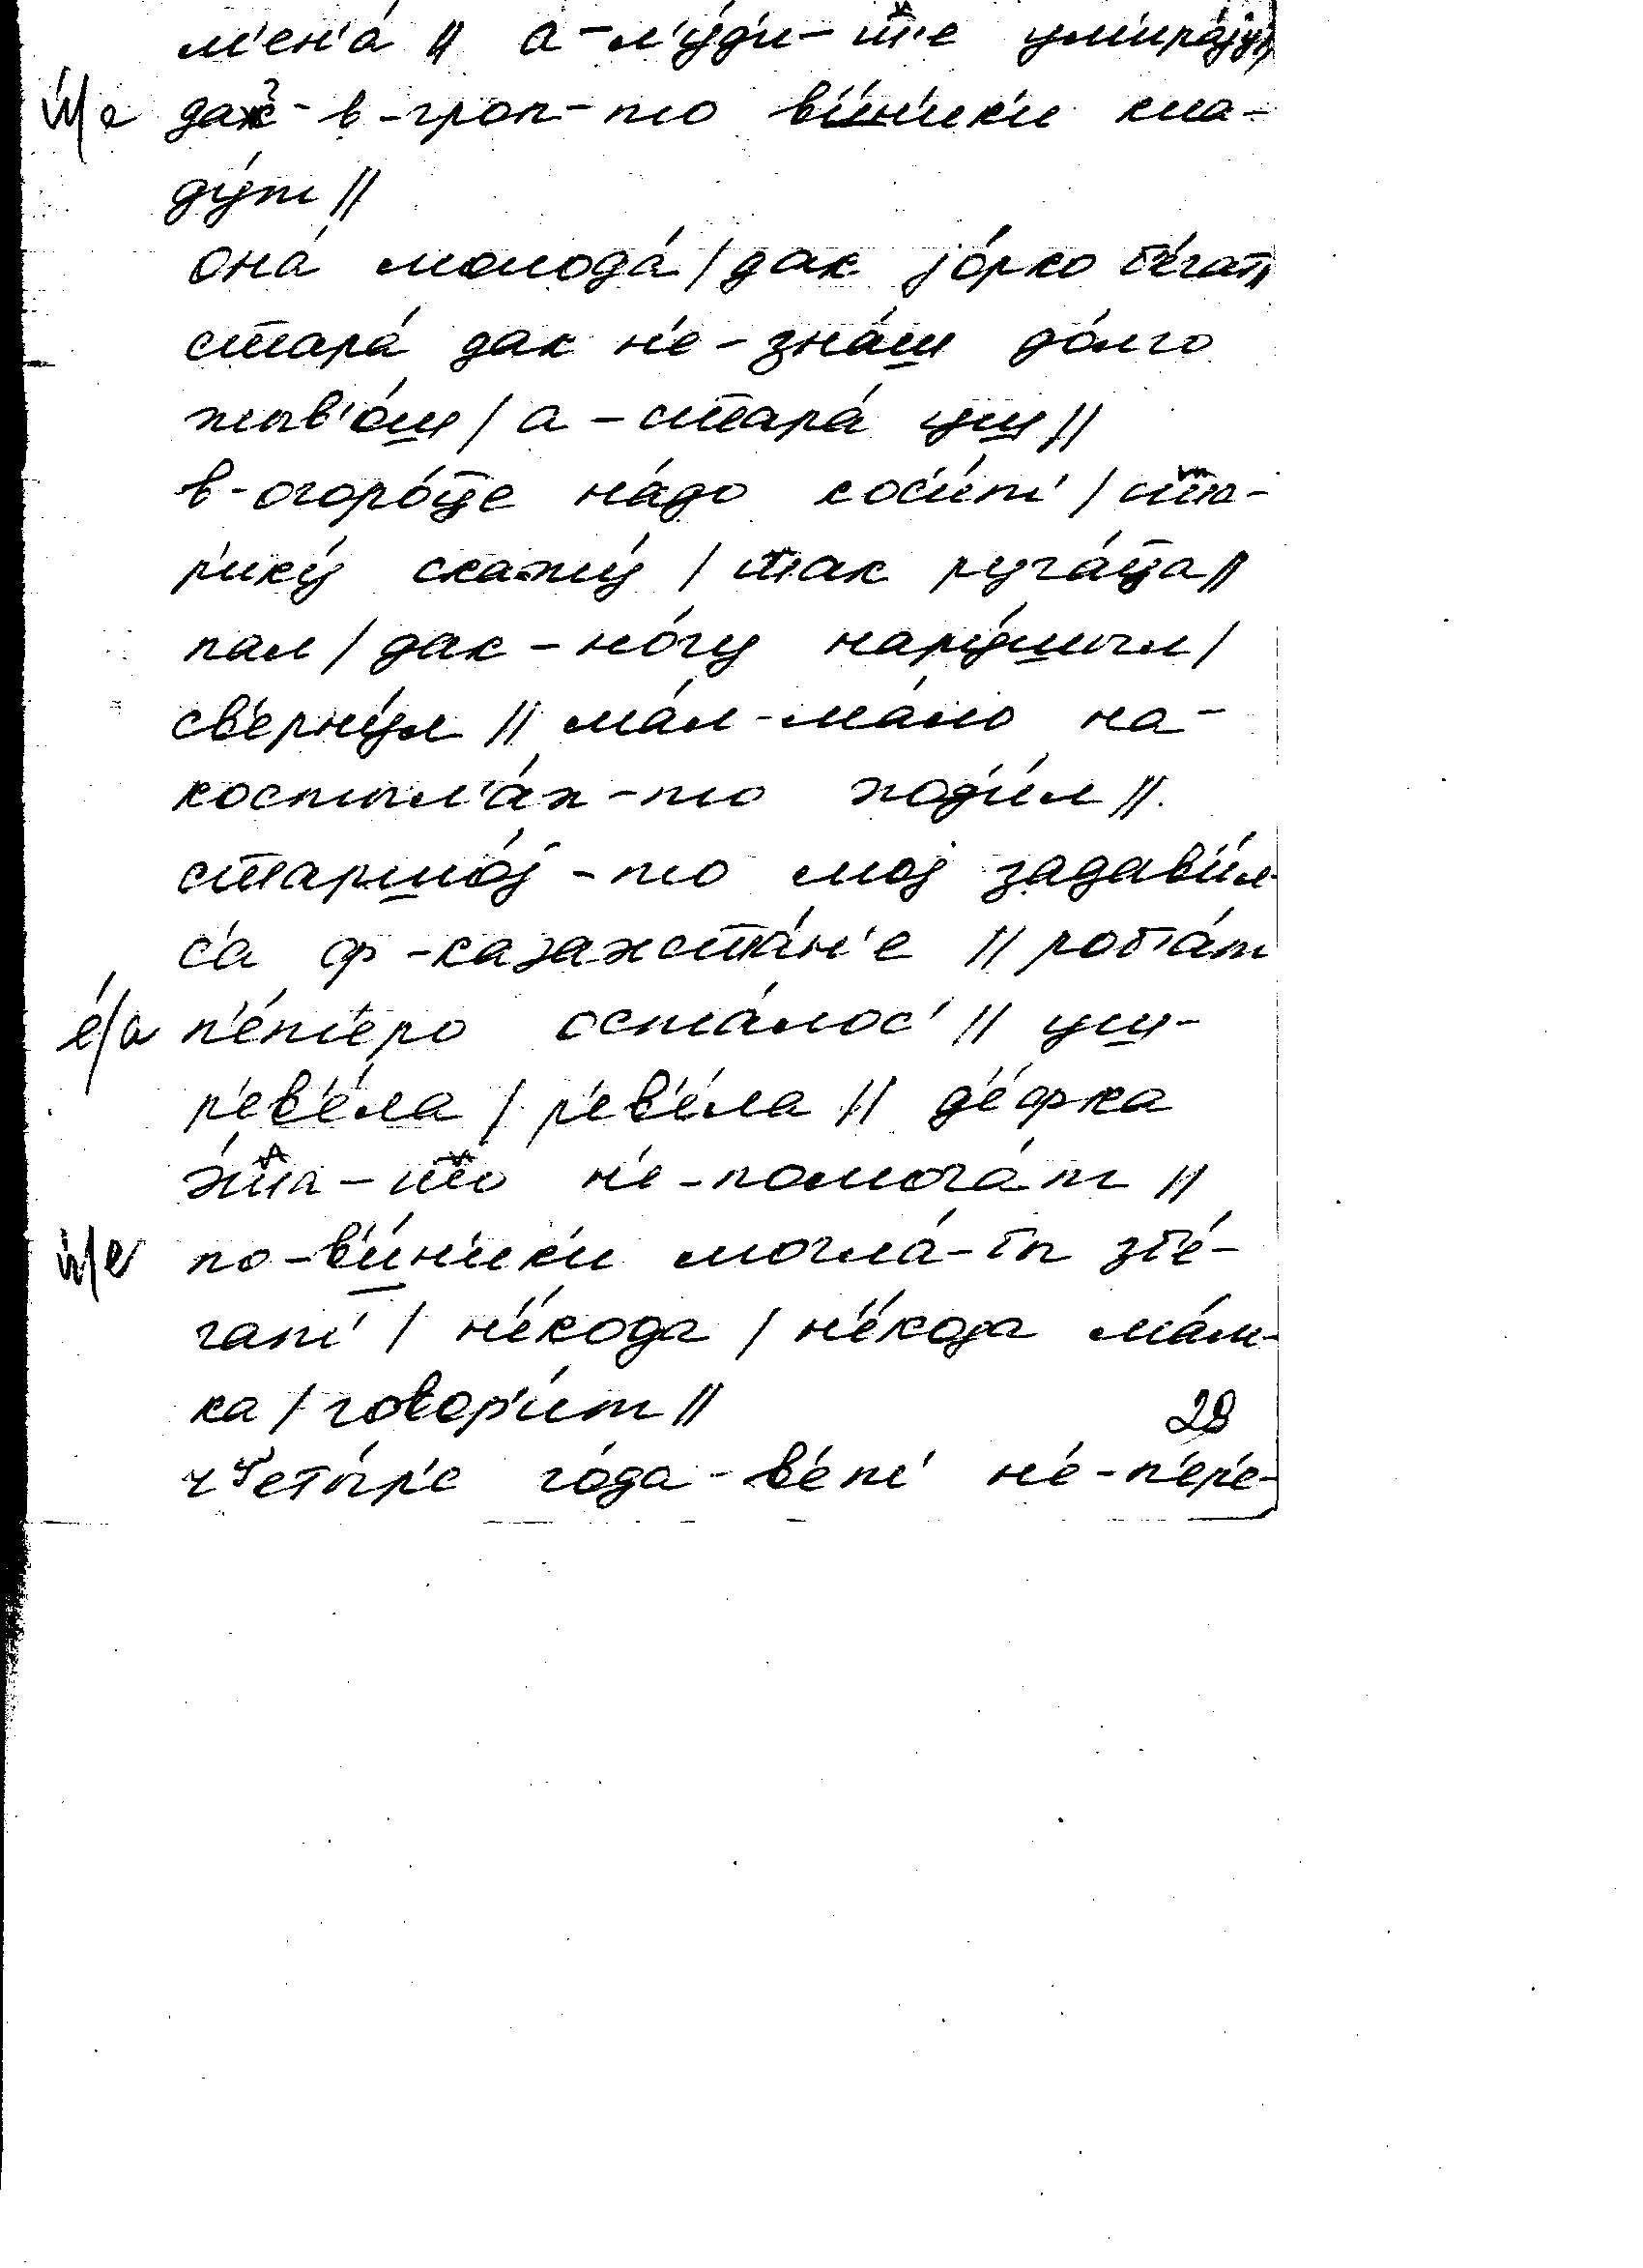 м'ен'а́ // а-л'у́д'и-т'е умира́јут
и́/е даже-в-гроп-то в'и́н'ик'и кла-
ду́т //
она́ молода́ / дак јо́рко б'е́гат //
стара́ дак н'е-зна́ш до́лго
жыв'о́ш / а-стара́ уш //
в-огоро́це на́до кос'и́т' / ста-
р'ику́ скажу́ / так руга́ца //
пал / дак-но́гу нару́шыл /
св'ерну́л // ма́л-ма́ло на-
костыл'а́х-то ход'и́л //
старшо́ј-то мој задав'и́л-
с'а ф-казахста́н'е // роб'а́т
е́/а п'е́т'еро оста́лос' // уш-
р'ев'е́ла / р'ев'е́ла // д'е́фка
э́та-то н'е-помога́т //
и́/е по-в'и́н'ик'и могла́-бы зб'е́-
гат' / н'е́кода / н'е́кода ма́м-
ка / говор'и́т //
28
четы́р'е го́да-в'е́т' н'е-п'ер'е-